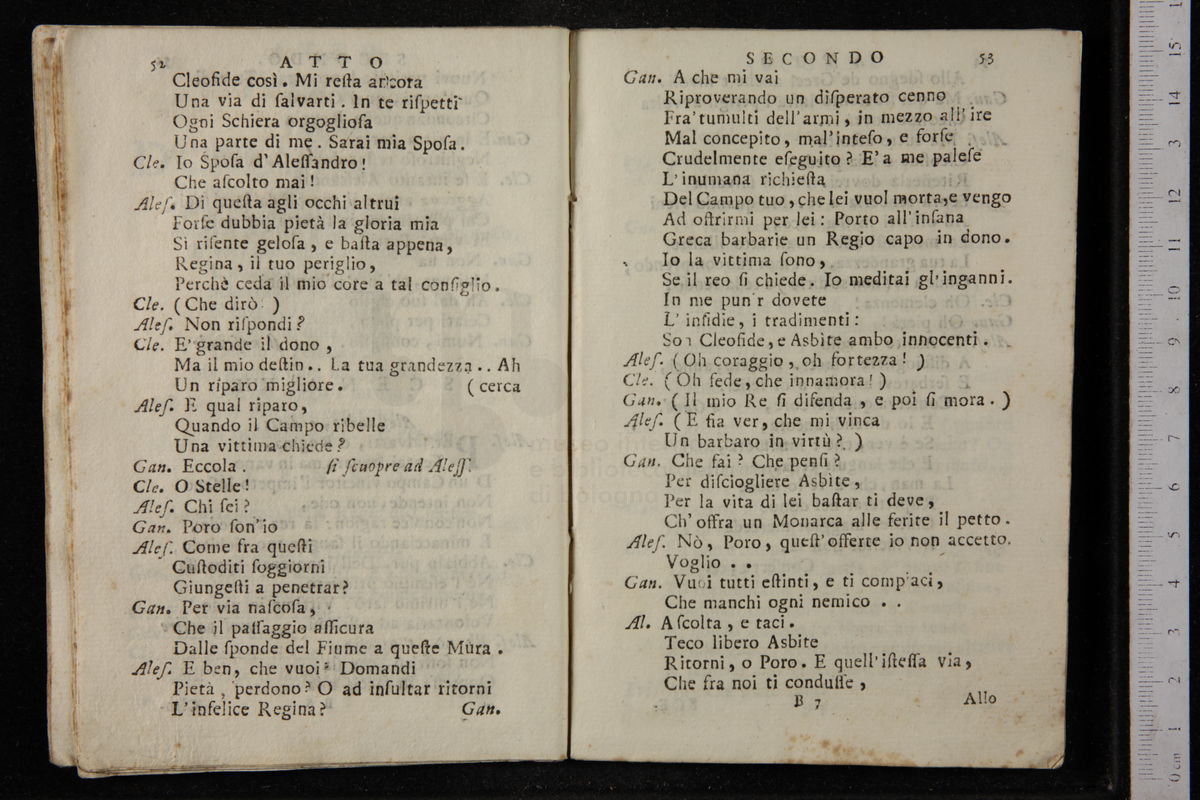 52 ATTO
Cleofide così. Mi reſta ancora
Una via di ſalvarti. In te riſpetti
Ogni Schiera orgoglioſa
Una parte di me. Sarai mia Spoſa.
Cle. Io Spoſa d'Aleſſandro!
Che aſcolto mai!
Aleſ. Di queſta agli occhi altrui
Forſe dubbia pietà la gloria mia
Sì riſente geloſa, e baſta appena,
Regina, il tuo periglio,
Perchè ceda il mio core a tal conſiglio.
Cle. (Che dirò?)
Aleſ. Non riſpondi?
Cle. E' grande il dono,
Ma il mio deſtin.. La tua grandezza.. Ah
Un riparo migliore. (cerca
Aleſ. E qual riparo,
Quando il Campo ribelle
Una vittima chiede?
Gan. Eccola. ſi ſcuopre ad Aleſſ.
Cle. O Stelle!
Aleſ. Chi ſei?
Gan. Poro ſon'io
Aleſ. Come fra queſti
Cuſtoditi ſoggiorni
Giungeſti a penetrar?
Gan. Per via naſcoſa,
Che il paſſaggio aſſicura
Dalle ſponde del Fiume a queſte Mura.
Aleſ. E ben, che vuoi? Domandi
Pietà, perdono? O ad inſultar ritorni
L'infelice Regina? Gan.
SECONDO 53
Gan. A che mi vai
Riproverando un diſperato cenno
Fra' tumulti dell'armi, in mezzo all' ire
Mal concepito, mal'inteſo, e forſe
Crudelmente eſeguito? E' a me paleſe
L'inumana richieſta
Del Campo tuo, che lei vuol morta, e vengo
Ad offrirmi per lei: Porto all'inſana
Greca barbarie un Regio capo in dono.
Io la vittima ſono,
Se il reo ſi chiede. Io meditai gl'inganni.
In me punir dovete
L' inſidie, i tradimenti:
Son Cleofide, e Asbite ambo innocenti.
Aleſ. (Oh coraggio, oh fortezza!)
Cle. (Oh fede, che innamora!)
Gan. (Il mio Re ſi difenda, e poi ſi mora.)
Aleſ. (E fia ver, che mi vinca
Un barbaro in virtù?)
Gan. Che fai? Che penſi?
Per diſciogliere Asbite,
Per la vita di lei baſtar ti deve,
Ch'offra un Monarca alle ferite il petto.
Aleſ. Nò, Poro, queſt'offerte io non accetto.
Voglio..
Gan. Vuoi tutti eſtinti, e ti compiaci,
Che manchi ogni nemico..
Al. Aſcolta, e taci.
Teco libero Asbite
Ritorni, o Poro. E quell'iſteſſa via,
Che fra noi ti conduſſe,
B 7 Allo